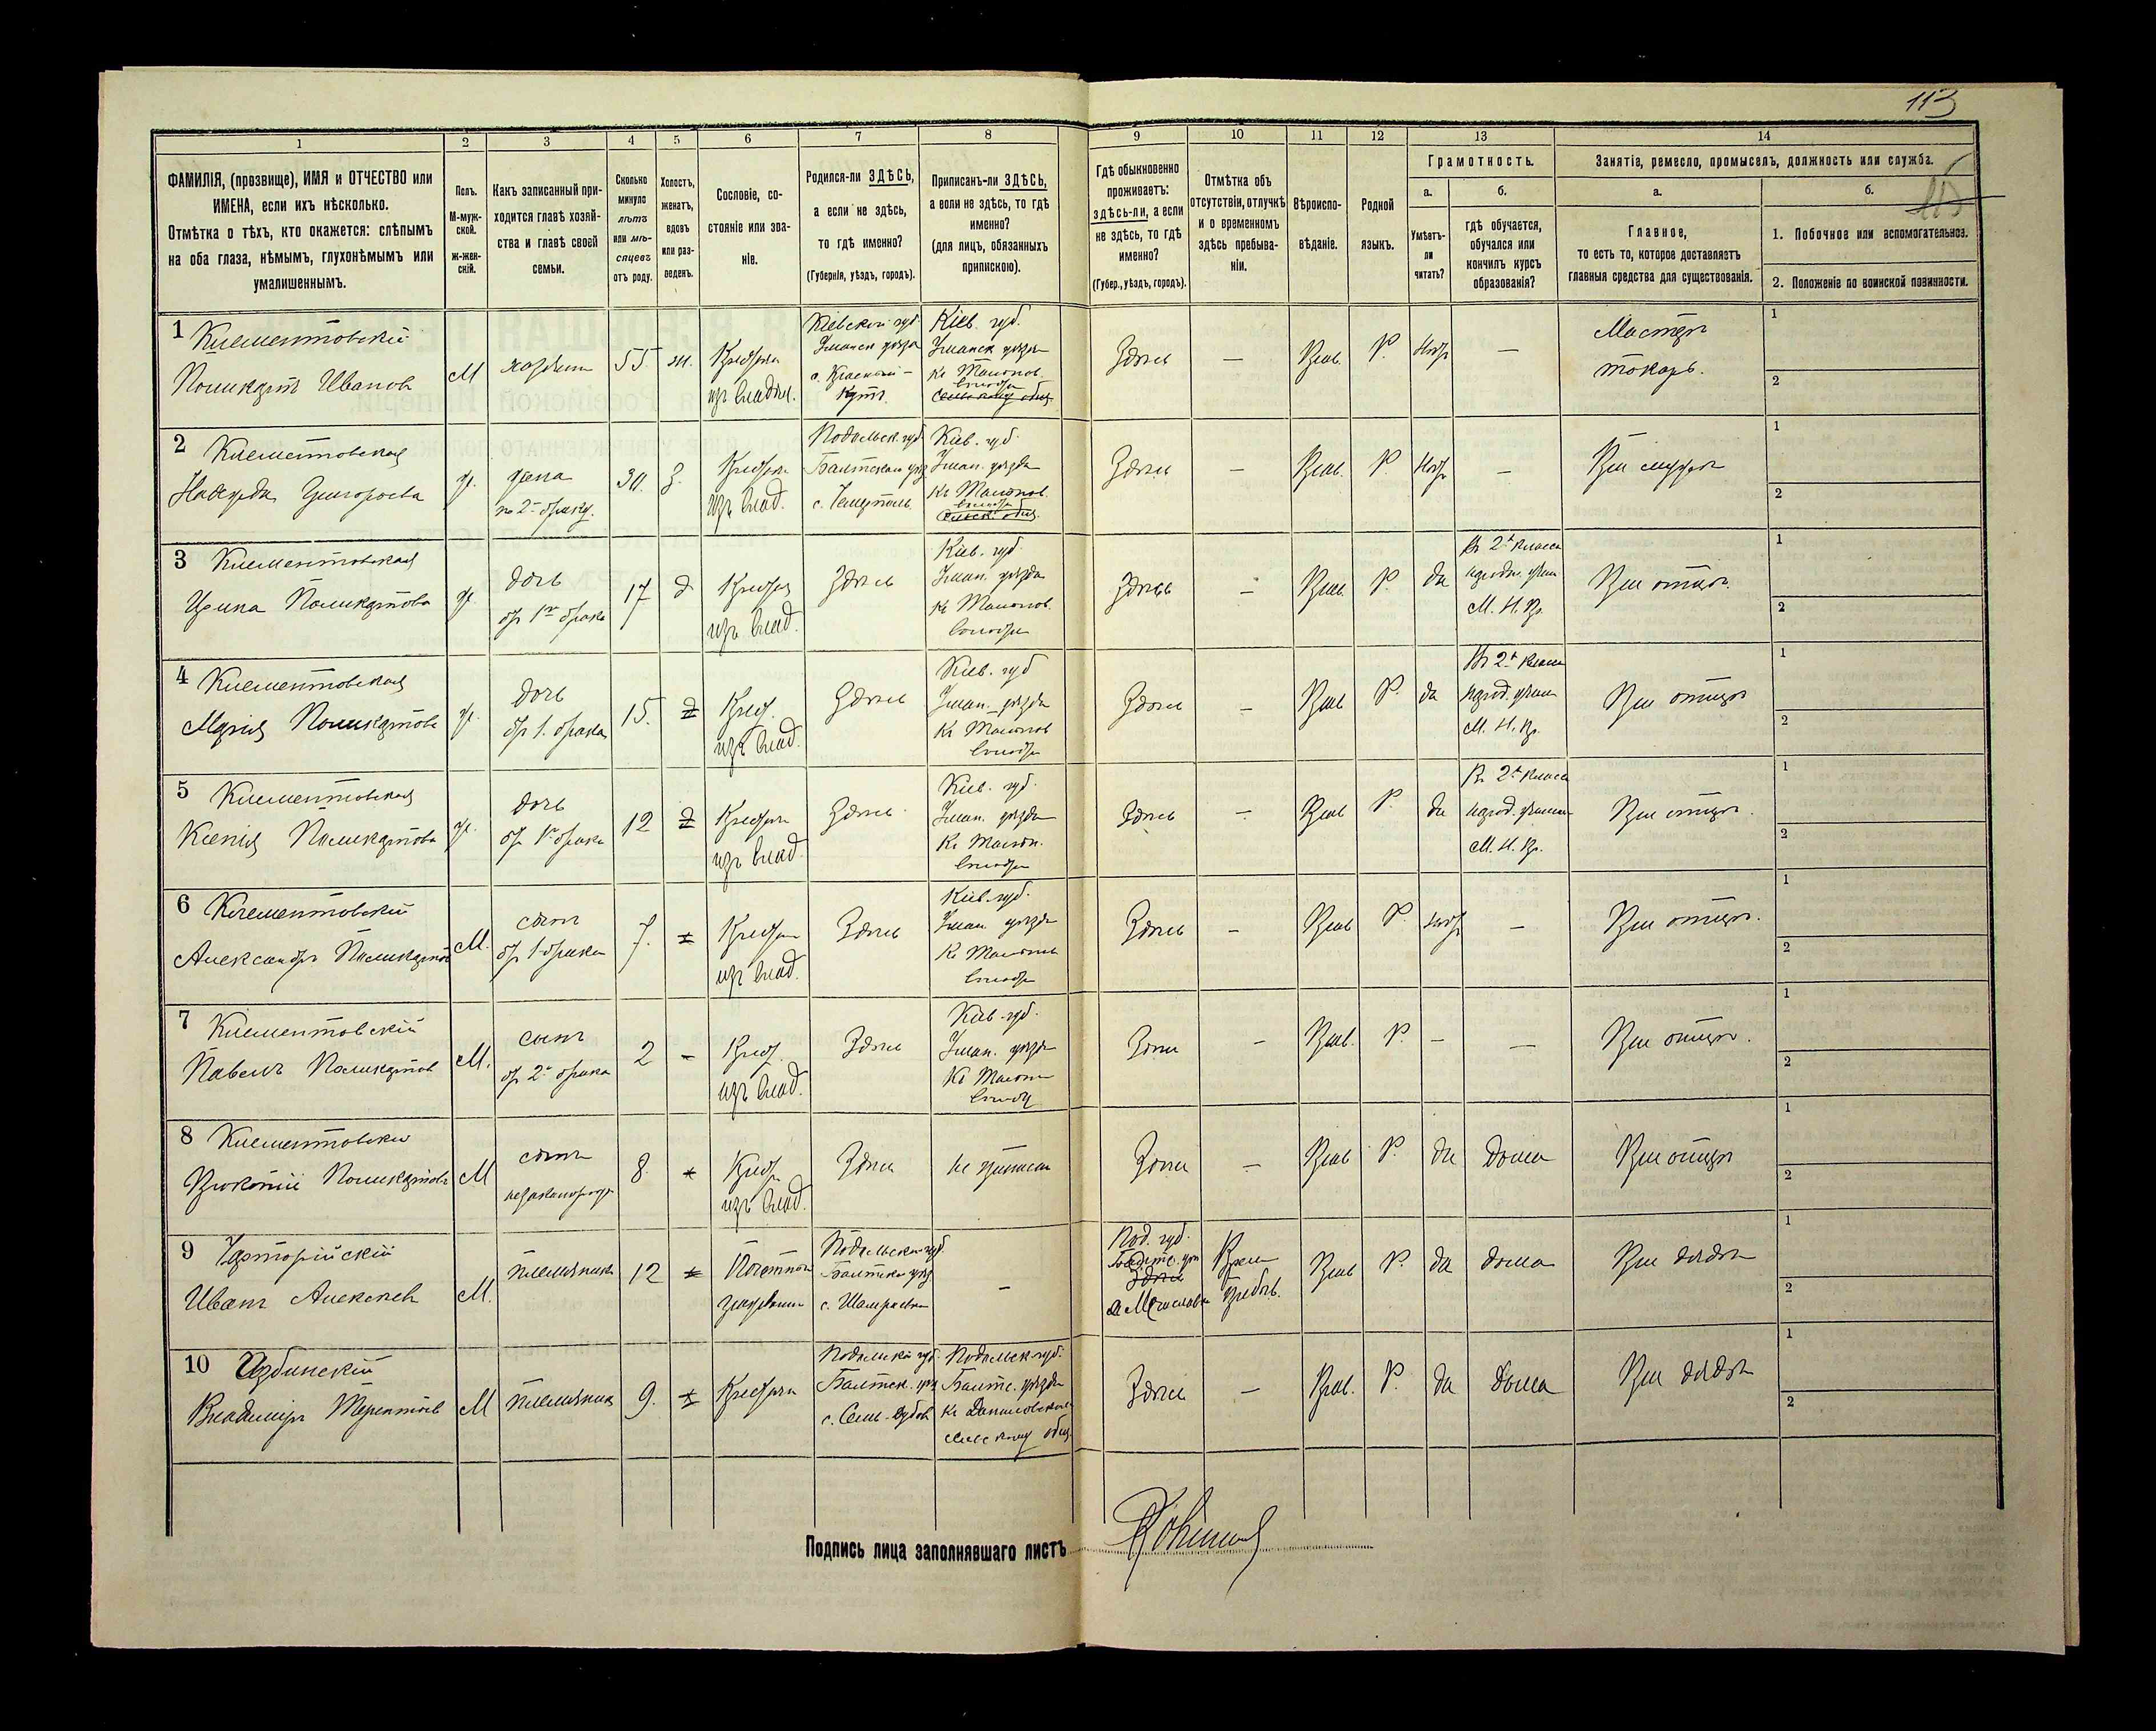 113
1
2
3
4
5
6
7
8
9
10
11
12
13
14
ФАМИЛІЯ, (прозвище), ИМЯ и ОТЧЕСТВО или
ИМЕНА, если ихъ нѣсколько.
Отмѣтка о тѣхъ, кто окажется: слѣпымъ
на оба глаза, нѣмымъ, глухонѣмымъ или
умалишеннымъ.
Полъ.
М-муж-
ской.
ж-жен-
скій.
Какъ записанный при-
ходится главѣ хозяй-
ства и главѣ своей
семьи.
Сколько
минуло
лѣтъ
или мѣ-
сяцевъ
отъ роду.
Холостъ,
женатъ,
вдовъ
или раз-
веденъ.
Сословіе, со-
стояніе или зва-
ніе.
Родился-ли ЗДѢСЬ,
а если не здѣсь,
то гдѣ именно?
(Губернія, уѣздъ, городъ).
Приписанъ-ли ЗДѢСЬ,
а если не здѣсь, то гдѣ
именно?
(для лицъ, обязанныхъ
припискою).
Гдѣ обыкновенно
проживаетъ:
здѣсь-ли, а если
не здѣсь, то гдѣ
именно?
(Губер., уѣздъ, городъ).
Отмѣтка объ
отсутствіи, отлучкѣ
и о временномъ
здѣсь пребыва-
ніи.
Вѣроиспо-
вѣданіе.
Родной
языкъ.
Грамотность.
а.
б.
Умѣетъ-
ли
читать?
гдѣ обучается,
обучался или
кончилъ курсъ
образованія?
Занятіе, ремесло, промыселъ, должность или служба.
а.
б.
Главное,
то есть то, которое доставляетъ
главныя средства для существованія.
1. Побочное или вспомогательное.
2. Положеніе по воинской повинности.
1 Климентовскій
Поликарпъ Ивановъ
М
хозяинъ
55.
ж.
Крестьян
изъ владѣл.
Кіевской губ.
Уманск уѣзда
с. Красный-
Кутъ.
Кіев. губ.
Уманск уѣзда
Здѣсь
—
Прав.
Р.
Нѣтъ
—
Мастеръ
токарь.
1
2
2 Климентовская
Надежда Григорьева
ж.
жена
по 2-му браку.
30.
З.
Крестьян
изъ влад.
Подольск. губ.
Балтскаго уѣзд
Кіев. губ.
Уман. уѣзда
Здѣсь
—
Прав.
Р.
Нѣтъ
—
При мужѣ
1
2
3 Климентовская
Ирина Поликарпова
ж.
дочь
отъ 1го брака
17
д
Крестьян
изъ влад.
Здѣсь
Кіев. губ.
Уман. уѣзда
волости
Здѣсь
—
Прав.
Р.
да
Въ 2х класс
народн. учил
М. Н. Пр.
При отцѣ.
1
2
4 Климентовская
Марія Поликарпова
ж.
дочь
отъ 1. брака
15.
д
Крест.
изъ влад.
Здѣсь
Кіев. губ
Уман. уѣзда
волости
Здѣсь
—
Прав
Р.
да
Въ 2х класс
народ. учил
М. Н. Пр.
При отцѣ
1
2
5 Климентовская
Ксенія Поликарпова
ж.
дочь
отъ 1го брака
12
д
Крестьян
изъ влад.
Здѣсь
Кіев. губ.
Уман. уѣзда
волости
Здѣсь
—
Прав
Р.
да
Въ 2х класс
народ. учил
М. Н. Пр.
При отцѣ.
1
2
6 Климентовскій
Александръ Поликарпов
М.
сынъ
отъ 1 брака
7.
Крестьян
изъ влад.
Здѣсь
Кіев. губ.
Уман уѣзда
волости
Здѣсь
—
Прав
Р.
Нѣтъ
—
При отцѣ.
1
2
7 Климентовскій
Павелъ Поликарпов
М.
сынъ
отъ 2го брака
2
—
Крест.
изъ влад.
Здѣсь
Кіев. губ.
Уман. уѣзда
Здѣсь
—
Прав.
Р.
—
—
При отцѣ.
1
2
8 Климентовскій
Прокопій Поликарповъ
М
сынъ
незаконорожд
8.
Крест
изъ влад.
Здѣсь
не приписан
Здѣсь
—
Прав
Р.
да
Дома
При отцѣ
1
2
9 Чарторійскій
Иванъ Алексѣев
М.
племянник
12
Почетный
гражданин
Подольской губ.
Балтскаго уѣзд
—
Под. губ.
Балтс. уѣз
Здѣсь
Врем
пребыв.
Прав
Р.
да
дома
При дядѣ
1
2
10 Избинскій
Владимиръ Терентьев
М
племянник
9.
Крестьян
Подольской губ.
Балтск. уѣз
Подольск. губ.
Балтс. уѣзда
сельскому общ.
Здѣсь
—
Прав.
Р.
да
дома
При дядѣ
1
2
Подпись лица заполнявшаго листъ